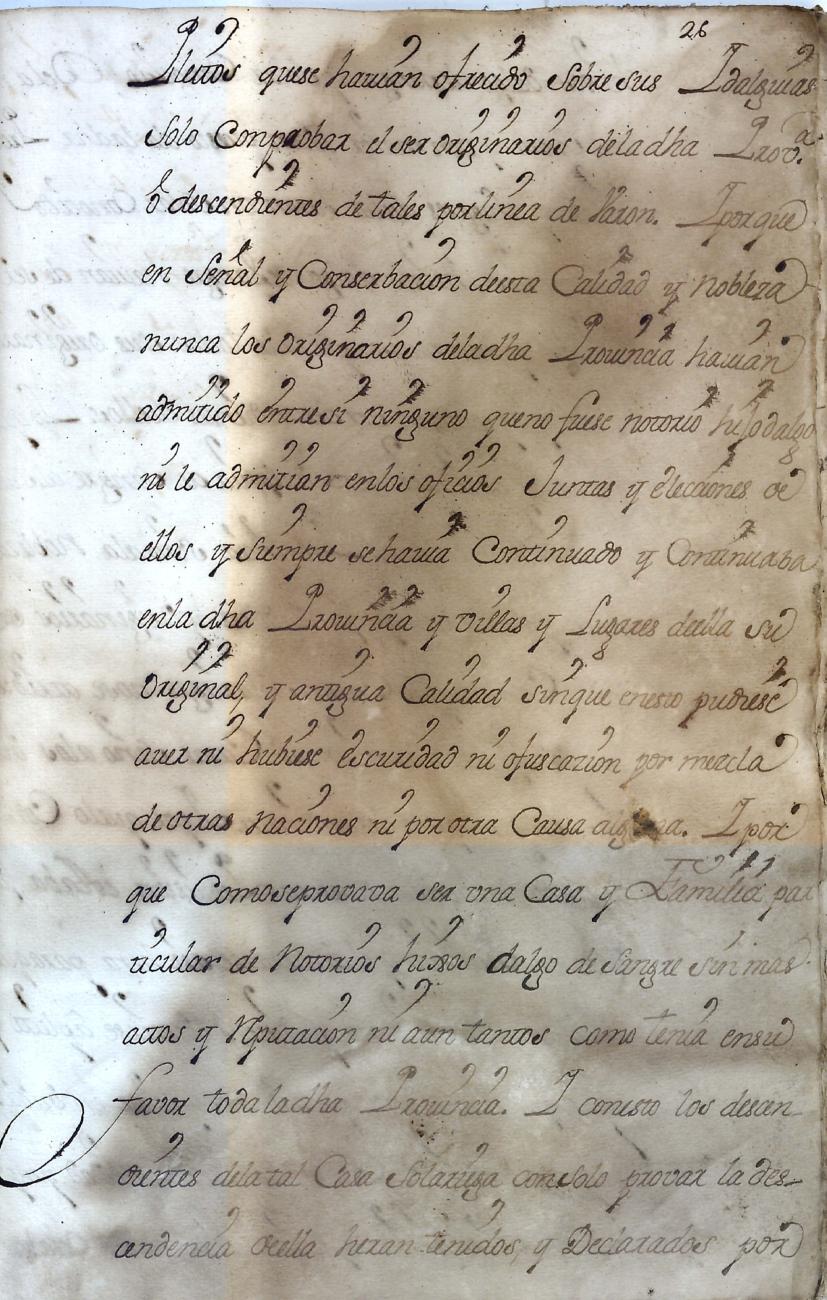 26
Pleitos quese havian ofrecido sobre sus Idalguias
solo comprobar el ser originarios deladha Prov.a
ô descendientes de tales por linea de Varon. I porque
en señal y Conserbacion deesta Calidad y nobleza
nunca los originarios deladha Provincia havian
admitido entresi ninguno queno fuese notorio hijodalgo
ni le admitian enlos oficios Juntas y elecciones de
ellos y siempre sehavia Continuado y Continuaba
enla dha Provincia y villas y Lugares deella su
original, y antigua Calidad sinque enesto pudiese
aver ni hubiese escuridad ni ofuscazion por mezcla
de otras naciones ni por otra Causa alguna. I por
que Comoseprovava ser vna Casa y Familia par
ticular de Notorios hixos dalgo de sangre sin mas
actos y Rputacion ni aun tantos como tenia ensu
favor todaladha Provincia. I conesto los descen
dientes delatal Casa Solariega consolo provar la des-
cendencia deella heran tenidos, y Declarados por